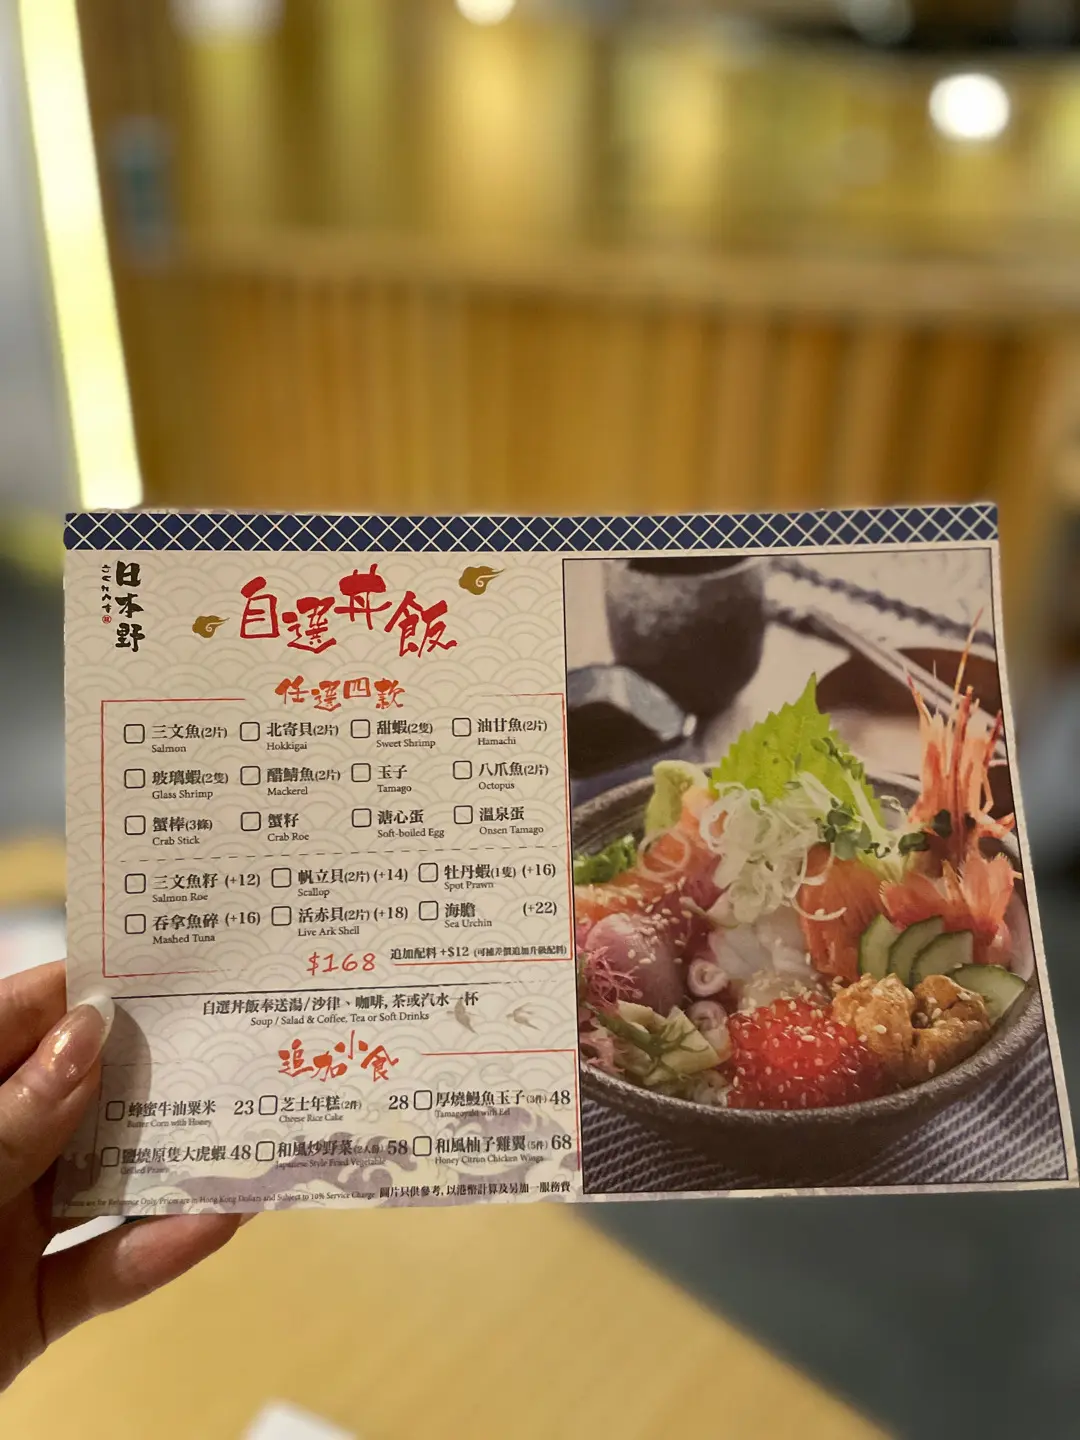 日本野
自選丼飯
任選四款
三文魚(2片) 北寄貝(2片) 甜蝦(2隻) 油甘魚(2片)
Salmon Hokkigai Sweet Shrimp Hamachi
玻璃蝦(2隻) 醋鯖魚(2片) 玉子 八爪魚(2片)
Glass Shrimp Mackerel Tamago Octopus
蟹棒(3條) 蟹籽 溏心蛋 溫泉蛋
Crab Stick Crab Roe Soft-boiled Egg Onsen Tamago
三文魚籽 (+12) 帆立貝(2片) (+14) 牡丹蝦(1隻) (+16)
Salmon Roe Scallop Spot Prawn
吞拿魚碎 (+16) 活赤貝(2片) (+18) 海膽 (+22)
Mashed Tuna Live Ark Shell Sea Urchin
$168 追加配料 +$12 (可補差價追加升級配料)
自選丼飯奉送湯/沙律、咖啡, 茶或汽水一杯
Soup / Salad & Coffee, Tea or Soft Drinks
追加小食
蜂蜜牛油粟米 23 芝士年糕(2件) 28 厚燒鰻魚玉子(3件) 48
Butter Corn with Honey Cheese Rice Cake Tamagoyaki with Eel
鹽燒原隻大虎蝦 48 和風炒野菜(2人份) 58 和風柚子雞翼(5件) 68
Grilled Prawn Japanese Style Fried Vegetable Honey Citron Chicken Wings
are for Reference Only. Prices are in Hong Kong Dollars and Subject to 10% Service Charge. 圖片只供參考, 以港幣計算及另加一服務費